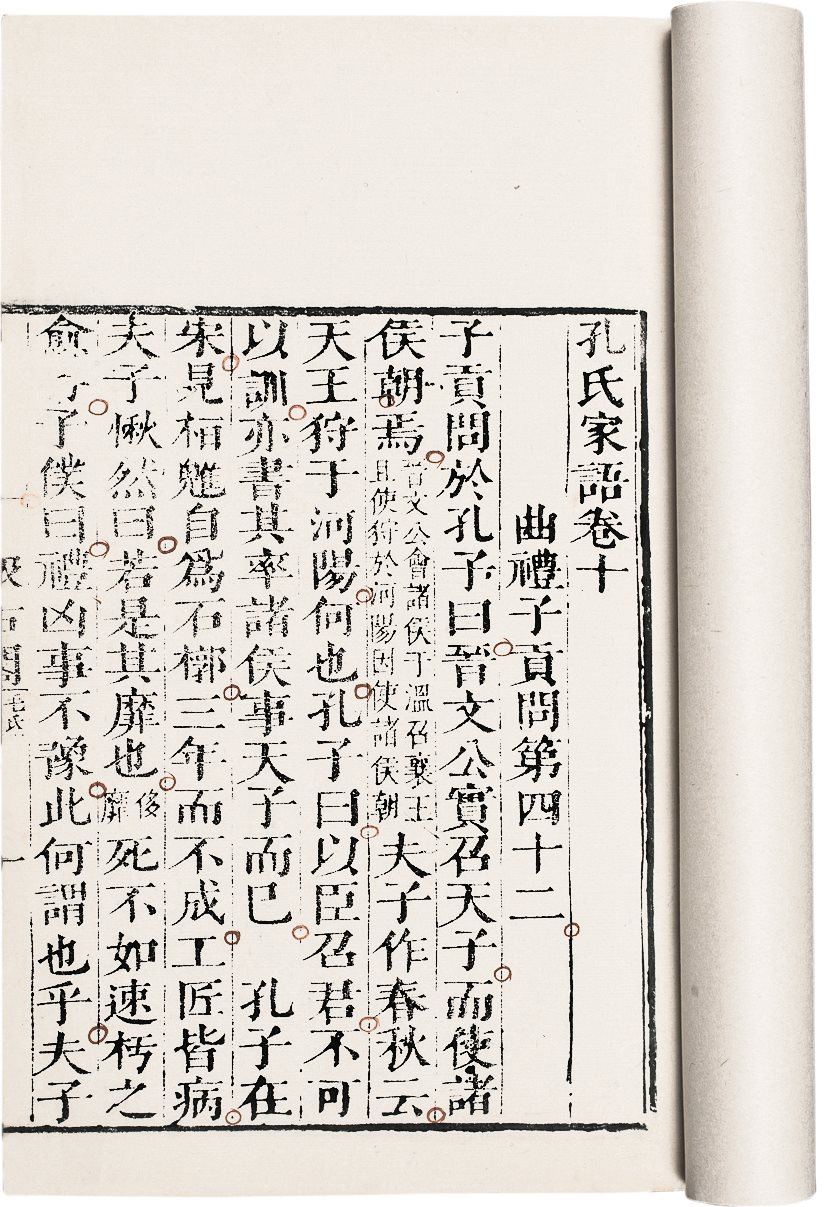 孔氏家語卷十
曲禮子貢問第四十二
子貢問於孔子曰晉文公實召天子而使諸
侯朝焉晉文公會諸侯于溫召襄王且使狩於河陽因使諸侯朝夫子作春秋云
天王狩于河陽何也孔子曰以臣召君不可
以訓亦書其率諸侯事天子而已 孔子在
宋見桓魋自爲石槨三年而不成工匠皆病
夫子愀然曰若是其靡也侈靡死不如速朽之
愈子僕曰禮凶事不豫此何謂也乎夫子